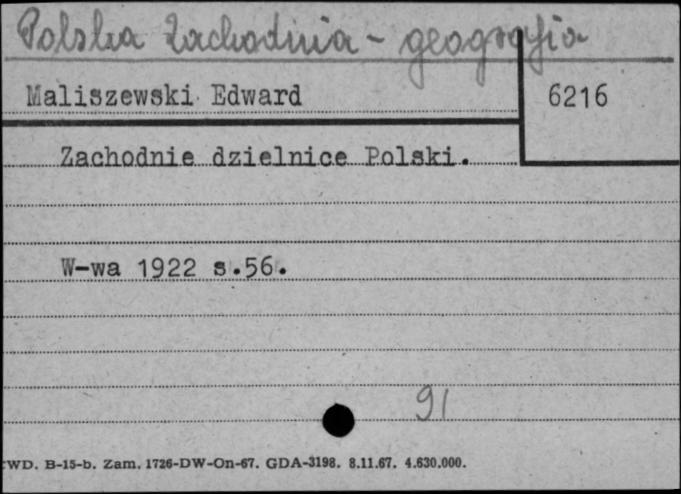 Polska Zachodnia - geografia
Maliszewski Edward 6216
Zachodnie dzielnice Polski.
W-wa 1922 s.56.
91
WD. B-15-b. Zam. 1726-DW-On-67. GDA-3198. 8.11.67. 4.630.000.